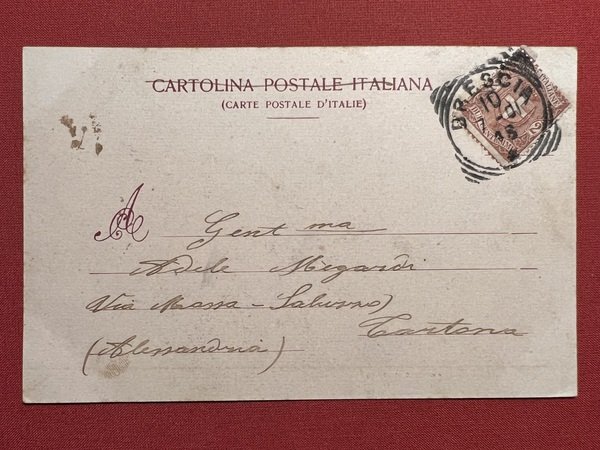 CARTOLINA POSTALE ITALIANA
(CARTE POSTALE D'ITALIE)
BRESCIA
10
A
Gent ma
Adele Megardi
Via Massa-Saluzzo
Tortona
(Alessandria)